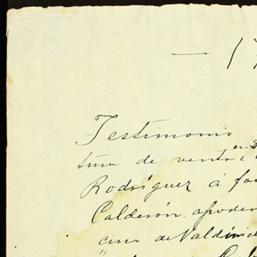 — 17
Testimonio
tura de venta
Rodríguez á fa
Calderón, apoder
cino de Valdivie